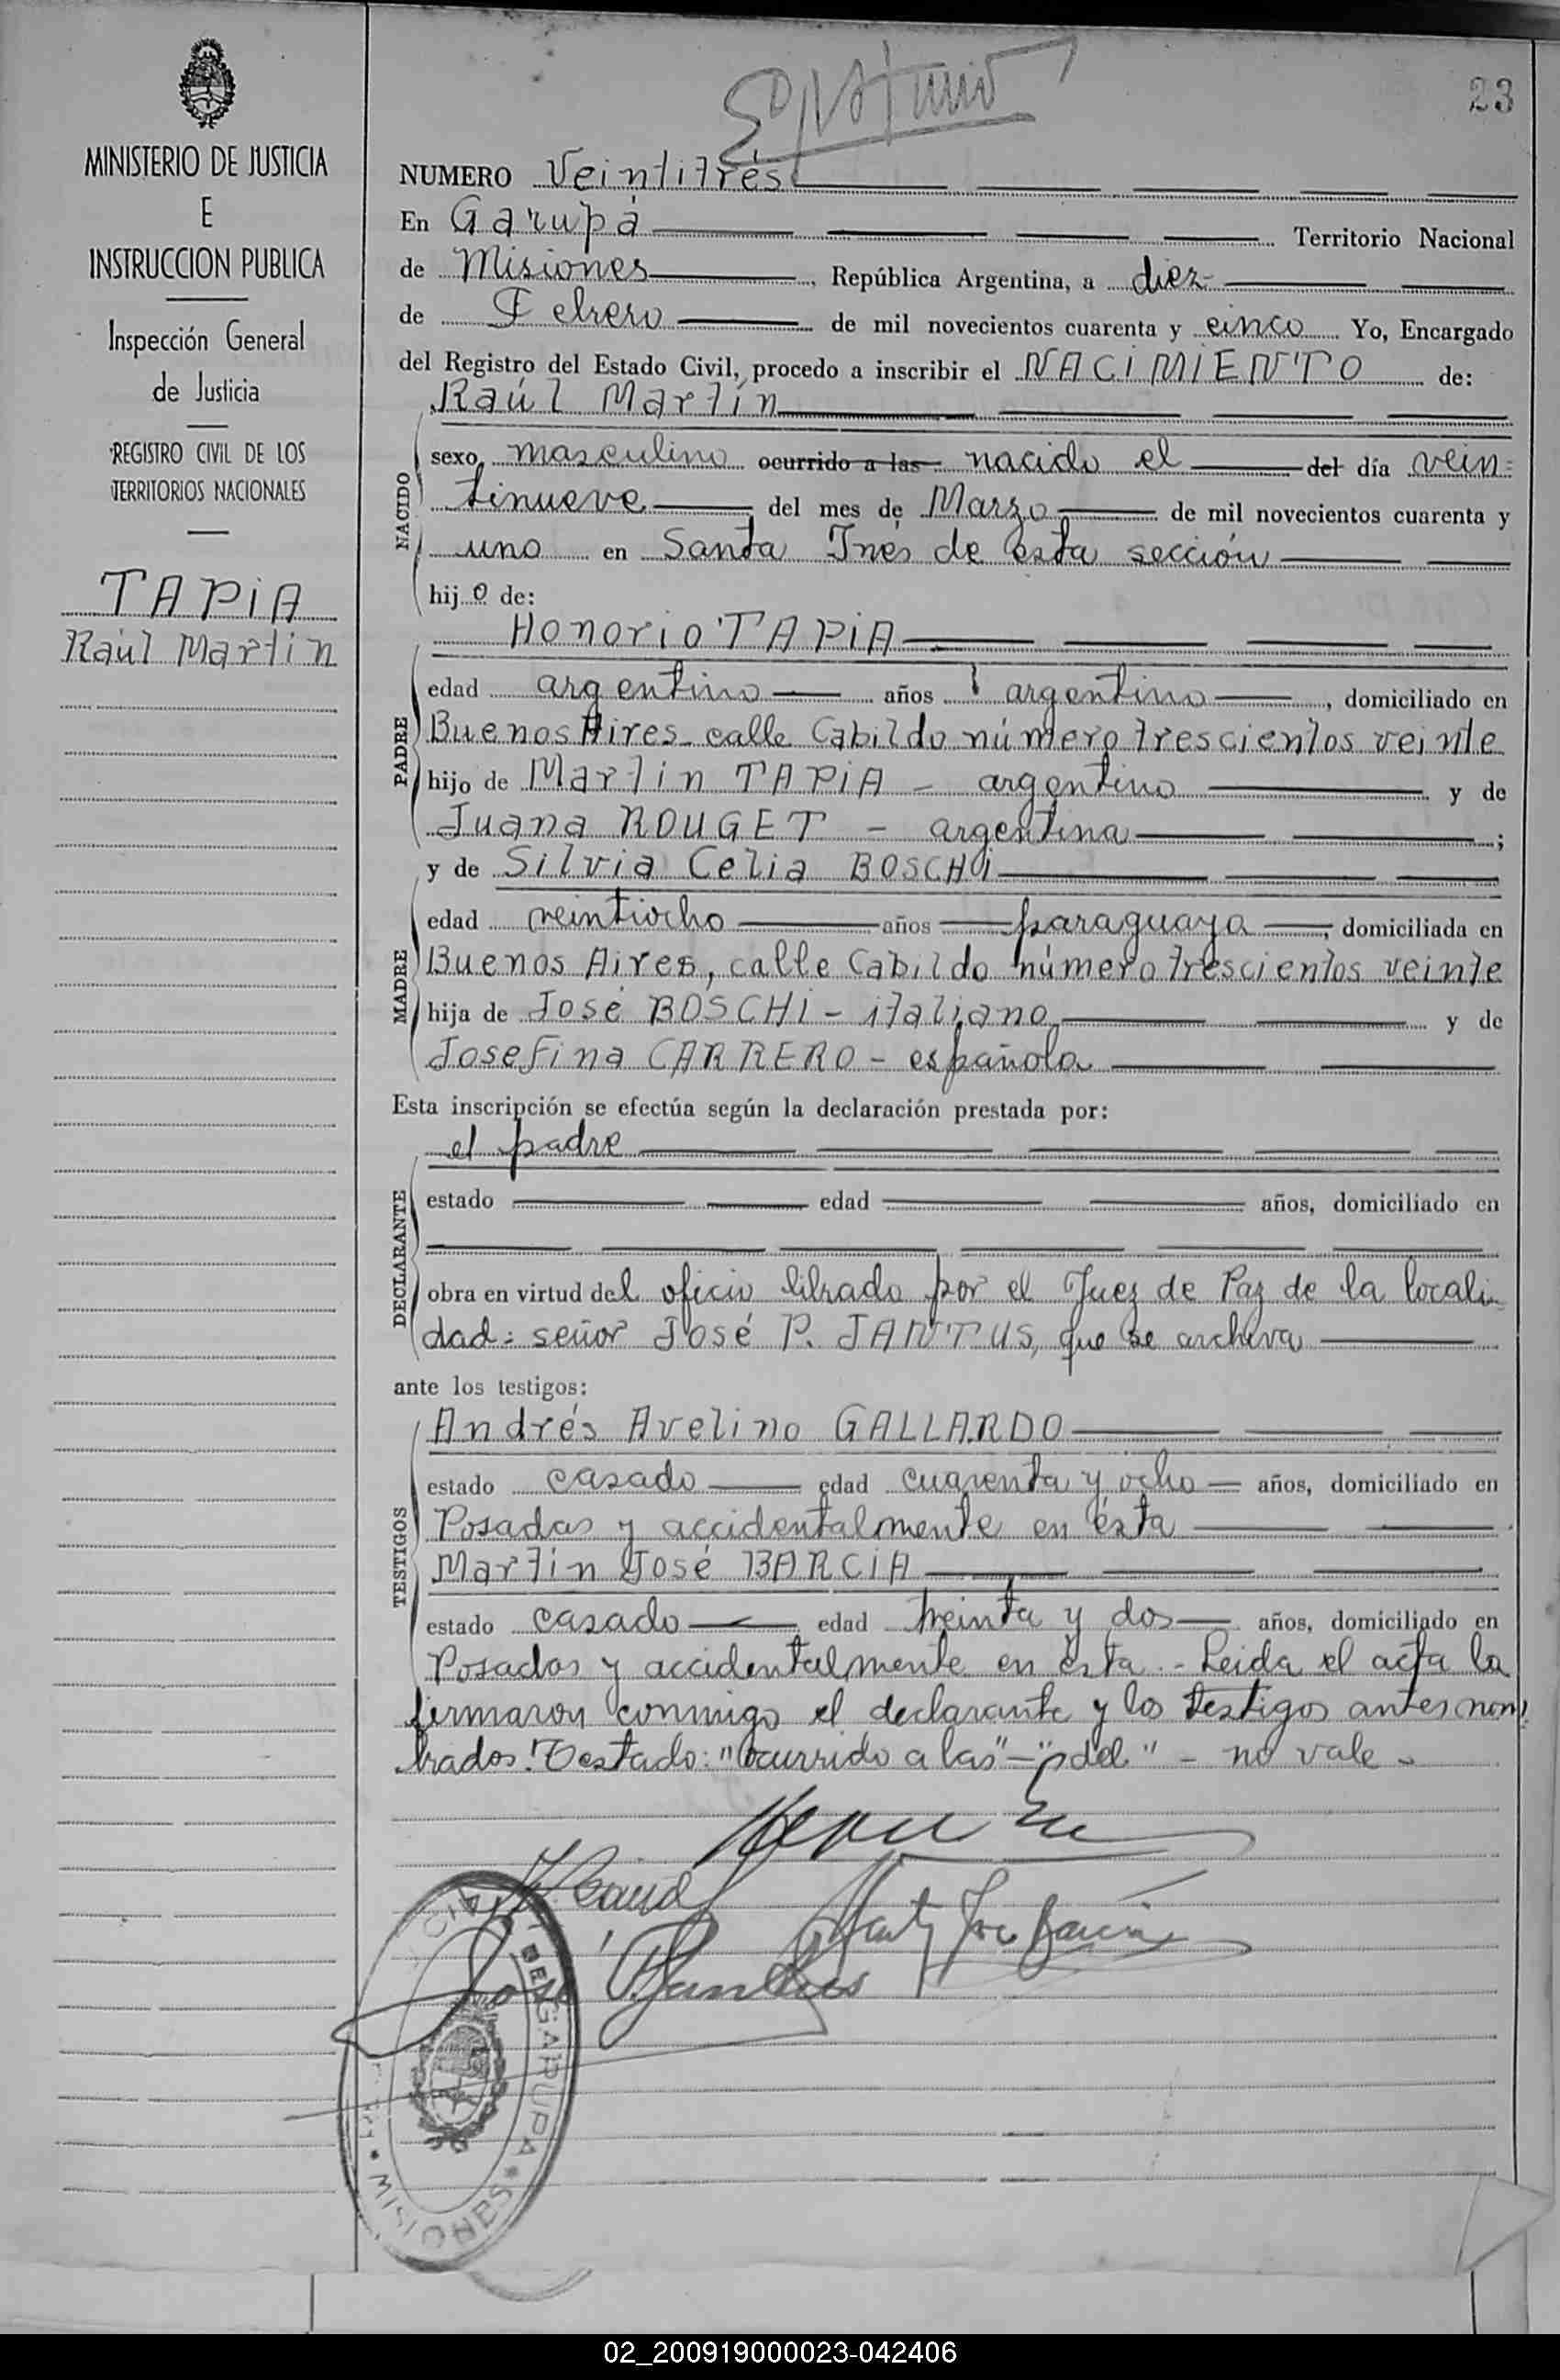 23
MINISTERIO DE JUSTICIA
E
INSTRUCCION PUBLICA
Inspección General
de Justicia
REGISTRO CIVIL DE LOS
TERRITORIOS NACIONALES
TAPIA
Raúl Martín
NUMERO Veintitrés
En Garupá Territorio Nacional
de Misiones, República Argentina, a diez
de Febrero de mil novecientos cuarenta y cinco Yo, Encargado
del Registro del Estado Civil, procedo a inscribir el NACIMIENTO de:
Raúl Martín
NACIDO
sexo masculino ocurrido a las nacido el del día vein-
tinueve del mes de Marzo de mil novecientos cuarenta y
uno en Santa Inés de esta sección
hijo de:
Honorio TAPIA
PADRE
edad argentino años argentino, domiciliado en
Buenos Aires - calle Cabildo número trescientos veinte
hijo de Martín TAPIA - argentino y de
Juana ROUGET - argentina;
y de Silvia Celia BOSCHI
MADRE
edad veintiocho años paraguaya, domiciliada en
Buenos Aires, calle Cabildo número trescientos veinte
hija de José BOSCHI - italiano y de
Josefina CARRERO - española
Esta inscripción se efectúa según la declaración prestada por:
el padre
DECLARANTE
estado edad años, domiciliado en
obra en virtud del oficio librado por el Juez de Paz de la locali-
dad: señor José P. JANTUS, que se archiva
ante los testigos:
Andrés Avelino GALLARDO
TESTIGOS
estado casado edad cuarenta y ocho años, domiciliado en
Posadas y accidentalmente en ésta
Martín José BARCIA
estado casado edad treinta y dos años, domiciliado en
Posadas y accidentalmente en ésta.- Leida el acta la
firmaron conmigo el declarante y los testigos antes nom-
brados. Testado: "ocurrido a las" - "del" - no vale -
José P. Jantus
DE GARUPA * MISIONES *
02_200919000023-042406